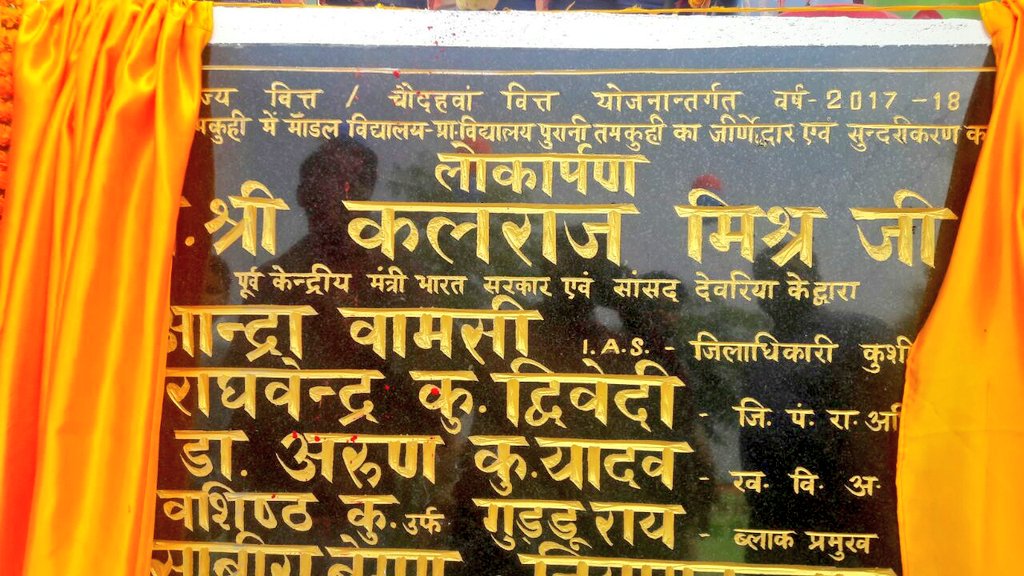 ज्य वित्त / चौदहवां वित्त योजनान्तर्गत वर्ष-2017-18
मकुही में मॉडल विद्यालय-प्रा.विद्यालय पुरानी तमकुही का जीर्णोद्धार एवं सुन्दरीकरण क
लोकार्पण
श्री कलराज मिश्र जी
पूर्व केन्द्रीय मंत्री भारत सरकार एवं सांसद देवरिया के द्वारा
आन्द्रा वामसी I.A.S. - जिलाधिकारी कुशी
राघवेन्द्र कु. द्विवेदी - जि. पं. रा. अ
डा. अरुण कु. यादव - ख. वि. अ.
वशिष्ठ कु. उर्फ गुड्डू राय - ब्लाक प्रमुख